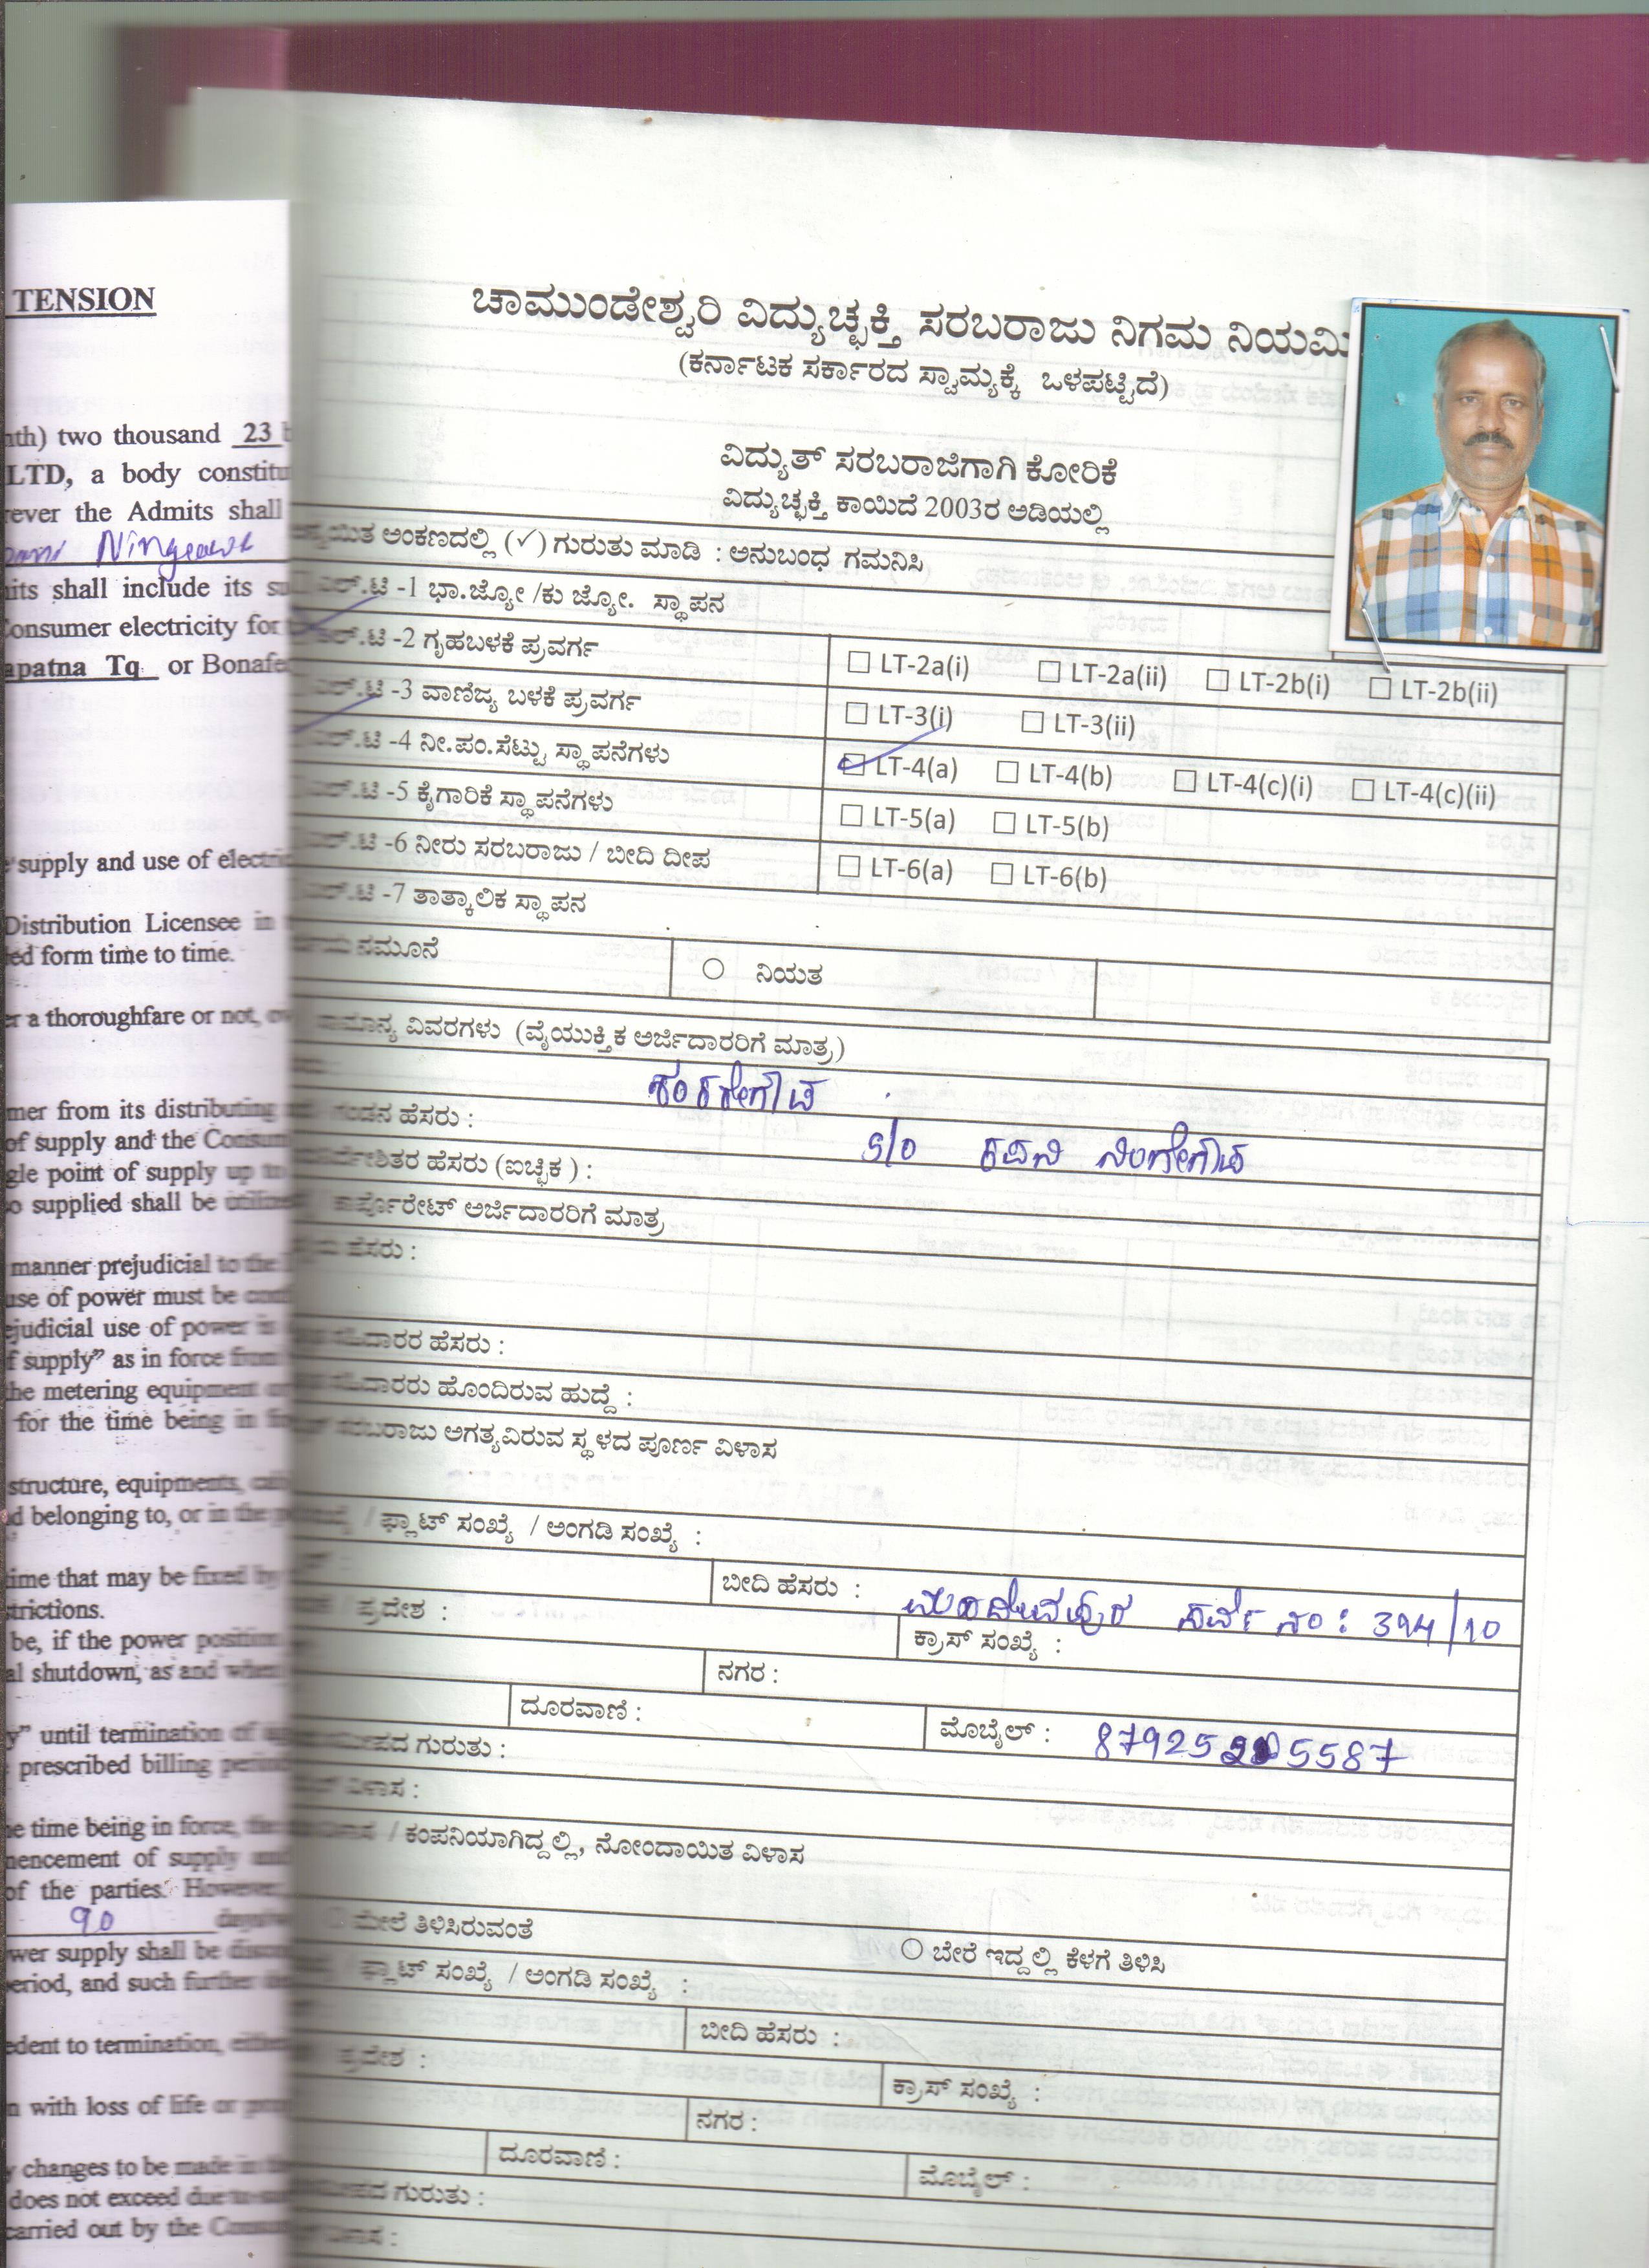 TENSION
two thousand 23
LTD, a body constitu
the Admits shall
Ningegowda
shall include its
onsumer electricity for
apatna Tq or Bonafe
supply and use of electric
Distribution Licensee in
ed form time to time.
r a thoroughfare or not,
mer from its distributing
of supply and the Consum
gle point of supply up to
o supplied shall be
manner prejudicial to the
use of power must be
ejudicial use of power is
f supply” as in force from
he metering equipment
for the time being in
structure, equipments,
d belonging to, or in the
ime that may be fixed by
trictions.
be, if the power position
al shutdown, as and when
y” until termination of
prescribed billing period
e time being in force, the
mencement of supply and
of the parties. However
90 days
wer supply shall be discon
eriod, and such further
edent to termination, either
n with loss of life or
y changes to be made in the
does not exceed due to
carried out by the Consum
ಚಾಮುಂಡೇಶ್ವರಿ ವಿದ್ಯುಚ್ಛಕ್ತಿ ಸರಬರಾಜು ನಿಗಮ ನಿಯಮಿ
(ಕರ್ನಾಟಕ ಸರ್ಕಾರದ ಸ್ವಾಮ್ಯಕ್ಕೆ ಒಳಪಟ್ಟಿದೆ)
ವಿದ್ಯುತ್ ಸರಬರಾಜಿಗಾಗಿ ಕೋರಿಕೆ
ವಿದ್ಯುಚ್ಛಕ್ತಿ ಕಾಯಿದೆ 2003ರ ಅಡಿಯಲ್ಲಿ
ಅನ್ವಯಿತ ಅಂಕಣದಲ್ಲಿ (✓) ಗುರುತು ಮಾಡಿ : ಅನುಬಂಧ ಗಮನಿಸಿ
ಎಲ್.ಟಿ -1 ಭಾ.ಜ್ಯೋ /ಕು ಜ್ಯೋ. ಸ್ಥಾಪನ
ಎಲ್.ಟಿ -2 ಗೃಹಬಳಕೆ ಪ್ರವರ್ಗ ☐ LT-2a(i) ☐ LT-2a(ii) ☐ LT-2b(i) ☐ LT-2b(ii)
ಎಲ್.ಟಿ -3 ವಾಣಿಜ್ಯ ಬಳಕೆ ಪ್ರವರ್ಗ ☐ LT-3(i) ☐ LT-3(ii)
ಎಲ್.ಟಿ -4 ನೀ.ಪಂ.ಸೆಟ್ಟು ಸ್ಥಾಪನೆಗಳು ☑ LT-4(a) ☐ LT-4(b) ☐ LT-4(c)(i) ☐ LT-4(c)(ii)
ಎಲ್.ಟಿ -5 ಕೈಗಾರಿಕೆ ಸ್ಥಾಪನೆಗಳು ☐ LT-5(a) ☐ LT-5(b)
ಎಲ್.ಟಿ -6 ನೀರು ಸರಬರಾಜು / ಬೀದಿ ದೀಪ ☐ LT-6(a) ☐ LT-6(b)
ಎಲ್.ಟಿ -7 ತಾತ್ಕಾಲಿಕ ಸ್ಥಾಪನ
ನಮೂನೆ ○ ನಿಯತ
ಸಾಮಾನ್ಯ ವಿವರಗಳು (ವೈಯುಕ್ತಿಕ ಅರ್ಜಿದಾರರಿಗೆ ಮಾತ್ರ)
ಶಂಕರೇಗೌಡ
ಗಂಡನ ಹೆಸರು :
S/o ಕವನಿ ನಿಂಗೇಗೌಡ
ನಿರ್ದೇಶಿತರ ಹೆಸರು (ಐಚ್ಛಿಕ) :
ಕಾರ್ಪೊರೇಟ್ ಅರ್ಜಿದಾರರಿಗೆ ಮಾತ್ರ
ಹೆಸರು :
ದಾರರ ಹೆಸರು :
ದಾರರು ಹೊಂದಿರುವ ಹುದ್ದೆ :
ಸರಬರಾಜು ಅಗತ್ಯವಿರುವ ಸ್ಥಳದ ಪೂರ್ಣ ವಿಳಾಸ
/ ಫ್ಲಾಟ್ ಸಂಖ್ಯೆ / ಅಂಗಡಿ ಸಂಖ್ಯೆ :
ಬೀದಿ ಹೆಸರು : ಮಹದೇವಪುರ ಸರ್ವೆ ನಂ : 394/10
/ ಪ್ರದೇಶ : ಕ್ರಾಸ್ ಸಂಖ್ಯೆ :
ನಗರ :
ದೂರವಾಣಿ : ಮೊಬೈಲ್ : 87925 5587
ಗುರುತು :
ವಿಳಾಸ :
ವಿಳಾಸ / ಕಂಪನಿಯಾಗಿದ್ದಲ್ಲಿ, ನೋಂದಾಯಿತ ವಿಳಾಸ
ಮೇಲೆ ತಿಳಿಸಿರುವಂತೆ ○ ಬೇರೆ ಇದ್ದಲ್ಲಿ ಕೆಳಗೆ ತಿಳಿಸಿ
/ ಫ್ಲಾಟ್ ಸಂಖ್ಯೆ / ಅಂಗಡಿ ಸಂಖ್ಯೆ :
ಬೀದಿ ಹೆಸರು :
ಪ್ರದೇಶ : ಕ್ರಾಸ್ ಸಂಖ್ಯೆ :
ನಗರ :
ದೂರವಾಣಿ : ಮೊಬೈಲ್ :
ಗುರುತು :
ವಿಳಾಸ :